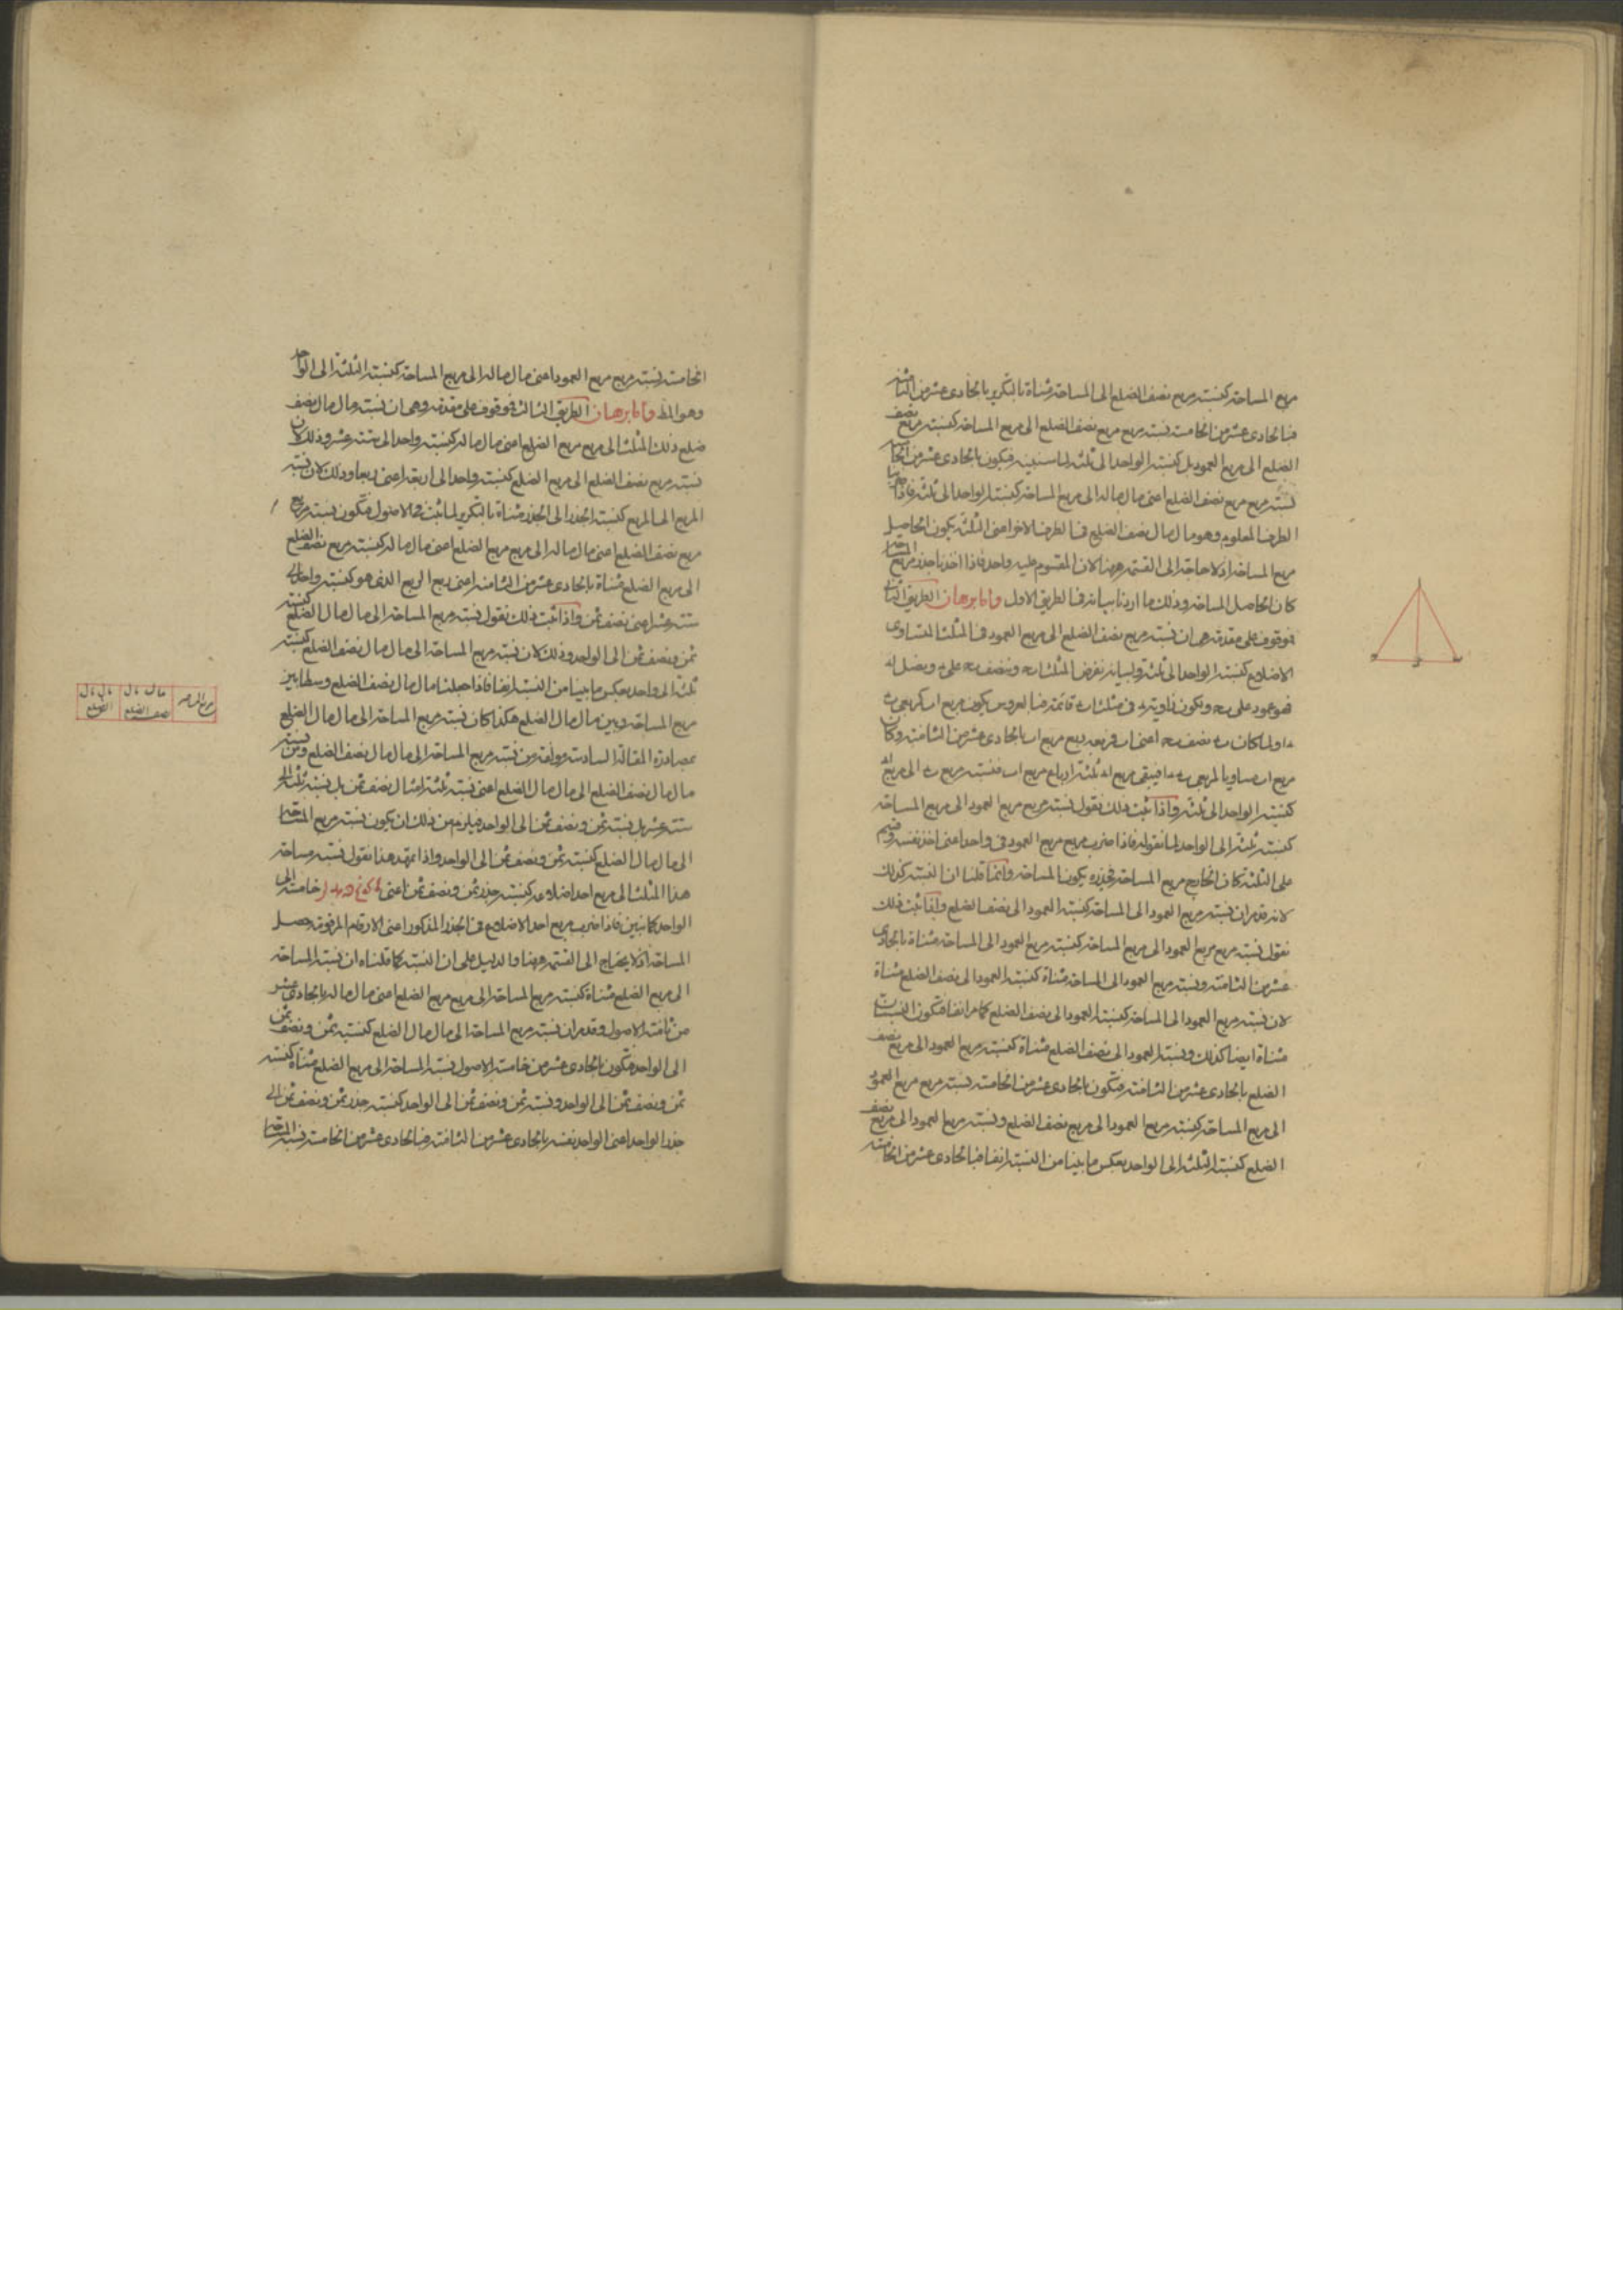 مربع المساحة كنسبة مربع نصف الضلع الى المساحة مثناة بالتكرير بالحادى عشر من الثامنة
فبالحادى عشر من الخامسة نسبة مربع مربع نصف الضلع الى مربع المساحة كنسبة مربع نصف
الضلع الى مربع العمود بل كنسبة الواحد الى ثلثة لما سنبينه فيكون بالحادى عشر من الخامسة
نسبة مربع مربع نصف الضلع اعنى مال ماله الى مربع المساحة كنسبة الواحد الى ثلثة فاذا ضربنا
الطرف المعلوم وهو مال مال نصف الضلع فى الطرف الاخر اعنى الثلثة يكون الحاصل
مربع المساحة اذ لا حاجة الى القسمة ههنا لان المقسوم عليه واحد فاذا اخذنا جذر مربع المساحة
كان الحاصل المساحة وذلك ما اردنا بيانه فى الطريق الاول واما برهان الطريق الثانى
فموقوف على مقدمة هى ان نسبة مربع نصف الضلع الى مربع العمود فى المثلث المتساوى
الاضلاع كنسبة الواحد الى ثلثة ولبيانه نفرض المثلث ا ب ح وننصف ب ح على ء ونصل ا ء
فهو عمود على ب ح وتكون زاوية ء فى مثلث ا ب ء قائمة فبالعروس يكون مربع ا ب كمربعى ب ء
ء ا ولما كان ب ء نصف ب ح اعنى ا ب فمربعه ربع مربع ا ب بالحادى عشر من الثامنة وكان
مربع ا ب مساويا لمربعى ب ء ء ا فيبقى مربع ا ء ثلثة ارباع مربع ا ب فنسبة مربع ب ء الى مربع ا ء
كنسبة الواحد الى ثلثة واذا ثبت ذلك نقول نسبة مربع مربع العمود الى مربع المساحة
كنسبة ثلثة الى الواحد لما نقوله فاذا ضرب مربع مربع العمود فى واحد اعنى اخذ نفسه وقسم
على الثلثة كان الخارج مربع المساحة فجذره يكون المساحة وانما قلنا ان النسبة كذلك
لانه قد مر ان نسبة مربع العمود الى المساحة كنسبة العمود الى نصف الضلع واذا ثبت ذلك
نقول نسبة مربع مربع العمود الى مربع المساحة كنسبة مربع العمود الى المساحة مثناة بالحادى
عشر من الثامنة ونسبة مربع العمود الى المساحة مثناة كنسبة العمود الى نصف الضلع مثناة
لان نسبة مربع العمود الى المساحة كنسبة العمود الى نصف الضلع كما مر انفا فتكون النسبتان
مثناة ايضا كذلك ونسبة العمود الى نصف الضلع مثناة كنسبة مربع العمود الى مربع نصف
الضلع بالحادى عشر من الثامنة فتكون بالحادى عشر من الخامسة نسبة مربع مربع العمود
الى مربع المساحة كنسبة مربع العمود الى مربع نصف الضلع ونسبة مربع العمود الى مربع نصف
الضلع كنسبة الثلثة الى الواحد بعكس ما بينا من النسبة انفا فبالحادى عشر من الخامسة
الخامسة نسبة مربع مربع العمود اعنى مال ماله الى مربع المساحة كنسبة الثلثة الى الواحد
وهو المط واما برهان الطريق الثالث فموقوف على مقدمة وهى ان نسبة مال مال نصف
ضلع ذلك المثلث الى مربع مربع الضلع اعنى مال ماله كنسبة واحد الى ستة عشر وذلك لان
نسبة مربع نصف الضلع الى مربع الضلع كنسبة واحد الى اربعة اعنى ربعها وذلك لان نسبة
المربع الى المربع كنسبة الجذر الى الجذر مثناة بالتكرير لما ثبت فى الاصول فتكون نسبة مربع
مربع نصف الضلع اعنى مال ماله الى مربع مربع الضلع اعنى مال ماله كنسبة مربع نصف الضلع
الى مربع الضلع مثناة بالحادى عشر من الثامنة اعنى ربع الربع الذى هو كنسبة واحد الى
ستة عشر اعنى نصف ثمن واذا ثبت ذلك نقول نسبة مربع المساحة الى مال مال الضلع كنسبة
ثمن ونصف ثمن الى الواحد وذلك لان نسبة مربع المساحة الى مال مال نصف الضلع كنسبة
ثلثة الى واحد بعكس ما بينا من النسبة انفا فاذا جعلنا مال مال نصف الضلع وسطا بين
مربع المساحة وبين مال مال الضلع هكذا كان نسبة مربع المساحة الى مال مال الضلع
بمصادرة المقالة السادسة مؤلفة من نسبة مربع المساحة الى مال مال نصف الضلع ومن نسبة
مال مال نصف الضلع الى مال مال الضلع اعنى نسبة ثلثة امثال نصف ثمن بل نسبة ثلثة الى
ستة عشر بل نسبة ثمن ونصف ثمن الى الواحد فيلزم من ذلك ان يكون نسبة مربع المساحة
الى مال مال الضلع كنسبة ثمن ونصف ثمن الى الواحد واذا تمهد هذا نقول نسبة مساحة
هذا المثلث الى مربع احد اضلاعه كنسبة جذر ثمن ونصف ثمن اعنى خامسة الى
الواحد كما نبين فاذا ضرب مربع احد الاضلاع فى الجذر المذكور اعنى الارقام المرقومة حصل
المساحة اذ لا يحتاج الى القسمة ههنا والدليل على ان النسبة كما قلناه ان نسبة المساحة
الى مربع الضلع مثناة كنسبة مربع المساحة الى مربع مربع الضلع اعنى مال ماله بالحادى عشر
من ثامنة الاصول وقد مر ان نسبة مربع المساحة الى مال مال الضلع كنسبة ثمن ونصف ثمن
الى الواحد فتكون بالحادى عشر من خامسة الاصول نسبة المساحة الى مربع الضلع مثناة كنسبة
ثمن ونصف ثمن الى الواحد ونسبة ثمن ونصف ثمن الى الواحد كنسبة جذر ثمن ونصف ثمن الى
جذر الواحد اعنى الواحد نفسه بالحادى عشر من الثامنة فبالحادى عشر من الخامسة نسبة المساحة
مربع المساحة
مال مال نصف الضلع
مال مال الضلع